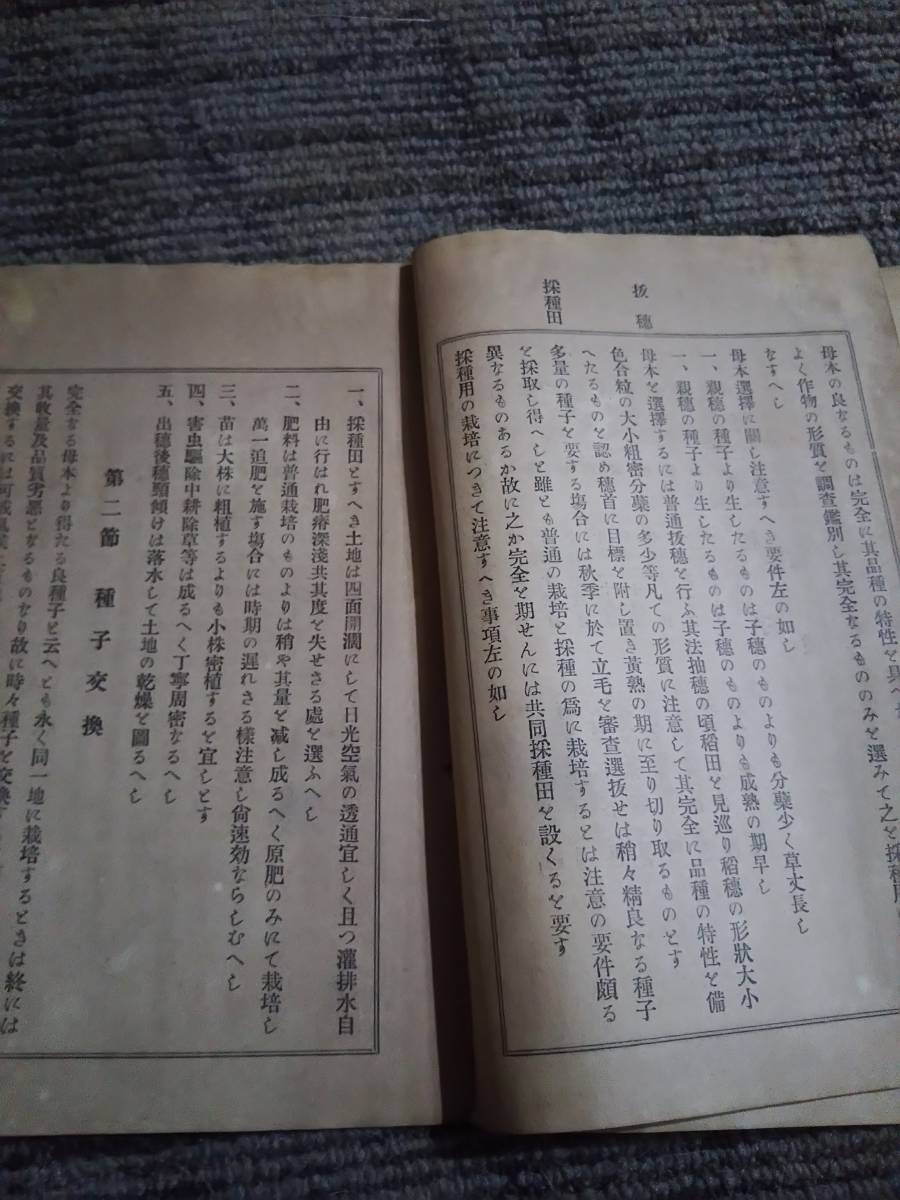 母本の良なるものは完全に其品種の特性を具へ
よく作物の形質を調査鑑別し其完全なるもののみを選みて之を採種用
なすへし
母本選擇に關し注意すへき要件左の如し
一、親穗の種子より生したるものは子穗のものよりも分蘖少く草丈長し
一、親穗の種子より生したるものは子穗のものよりも成熟の期早し
拔穗
母本を選擇するには普通拔穗を行ふ其法抽穗の頃稻田を見巡り稻穗の形狀大小
色合粒の大小粗密分蘖の多少等凡ての形質に注意して其完全に品種の特性を備
へたるものを認め穗首に目標を附し置き黃熟の期に至り切り取るものとす
採種田
多量の種子を要する塲合には秋季に於て立毛を審查選拔せは稍々精良なる種子
を採取し得へしと雖とも普通の栽培と採種の爲に栽培するとは注意の要件頗る
異なるものあるか故に之か完全を期せんには共同採種田を設くるを要す
採種用の栽培につきて注意すへき事項左の如し
一、採種田とすへき土地は四面開濶にして日光空氣の透通宜しく且つ灌排水自
由に行はれ肥瘠深淺共其度を失せさる處を選ふへし
二、肥料は普通栽培のものよりは稍や其量を减し成るへく原肥のみにて栽培し
萬一追肥を施す塲合には時期の遲れさる樣注意し尙速効ならしむへし
三、苗は大株に粗植するよりも小株密植するを宜しとす
四、害虫驅除中耕除草等は成るへく丁寧周密なるへし
五、出穗後穗頸傾けは落水して土地の乾燥を圖るへし
第二節 種子交換
完全なる母本より得たる良種子と云へとも永く同一地に栽培するときは終には
其收量及品質劣惡となるものなり故に時々種子を交換す
交換するには可成氣候